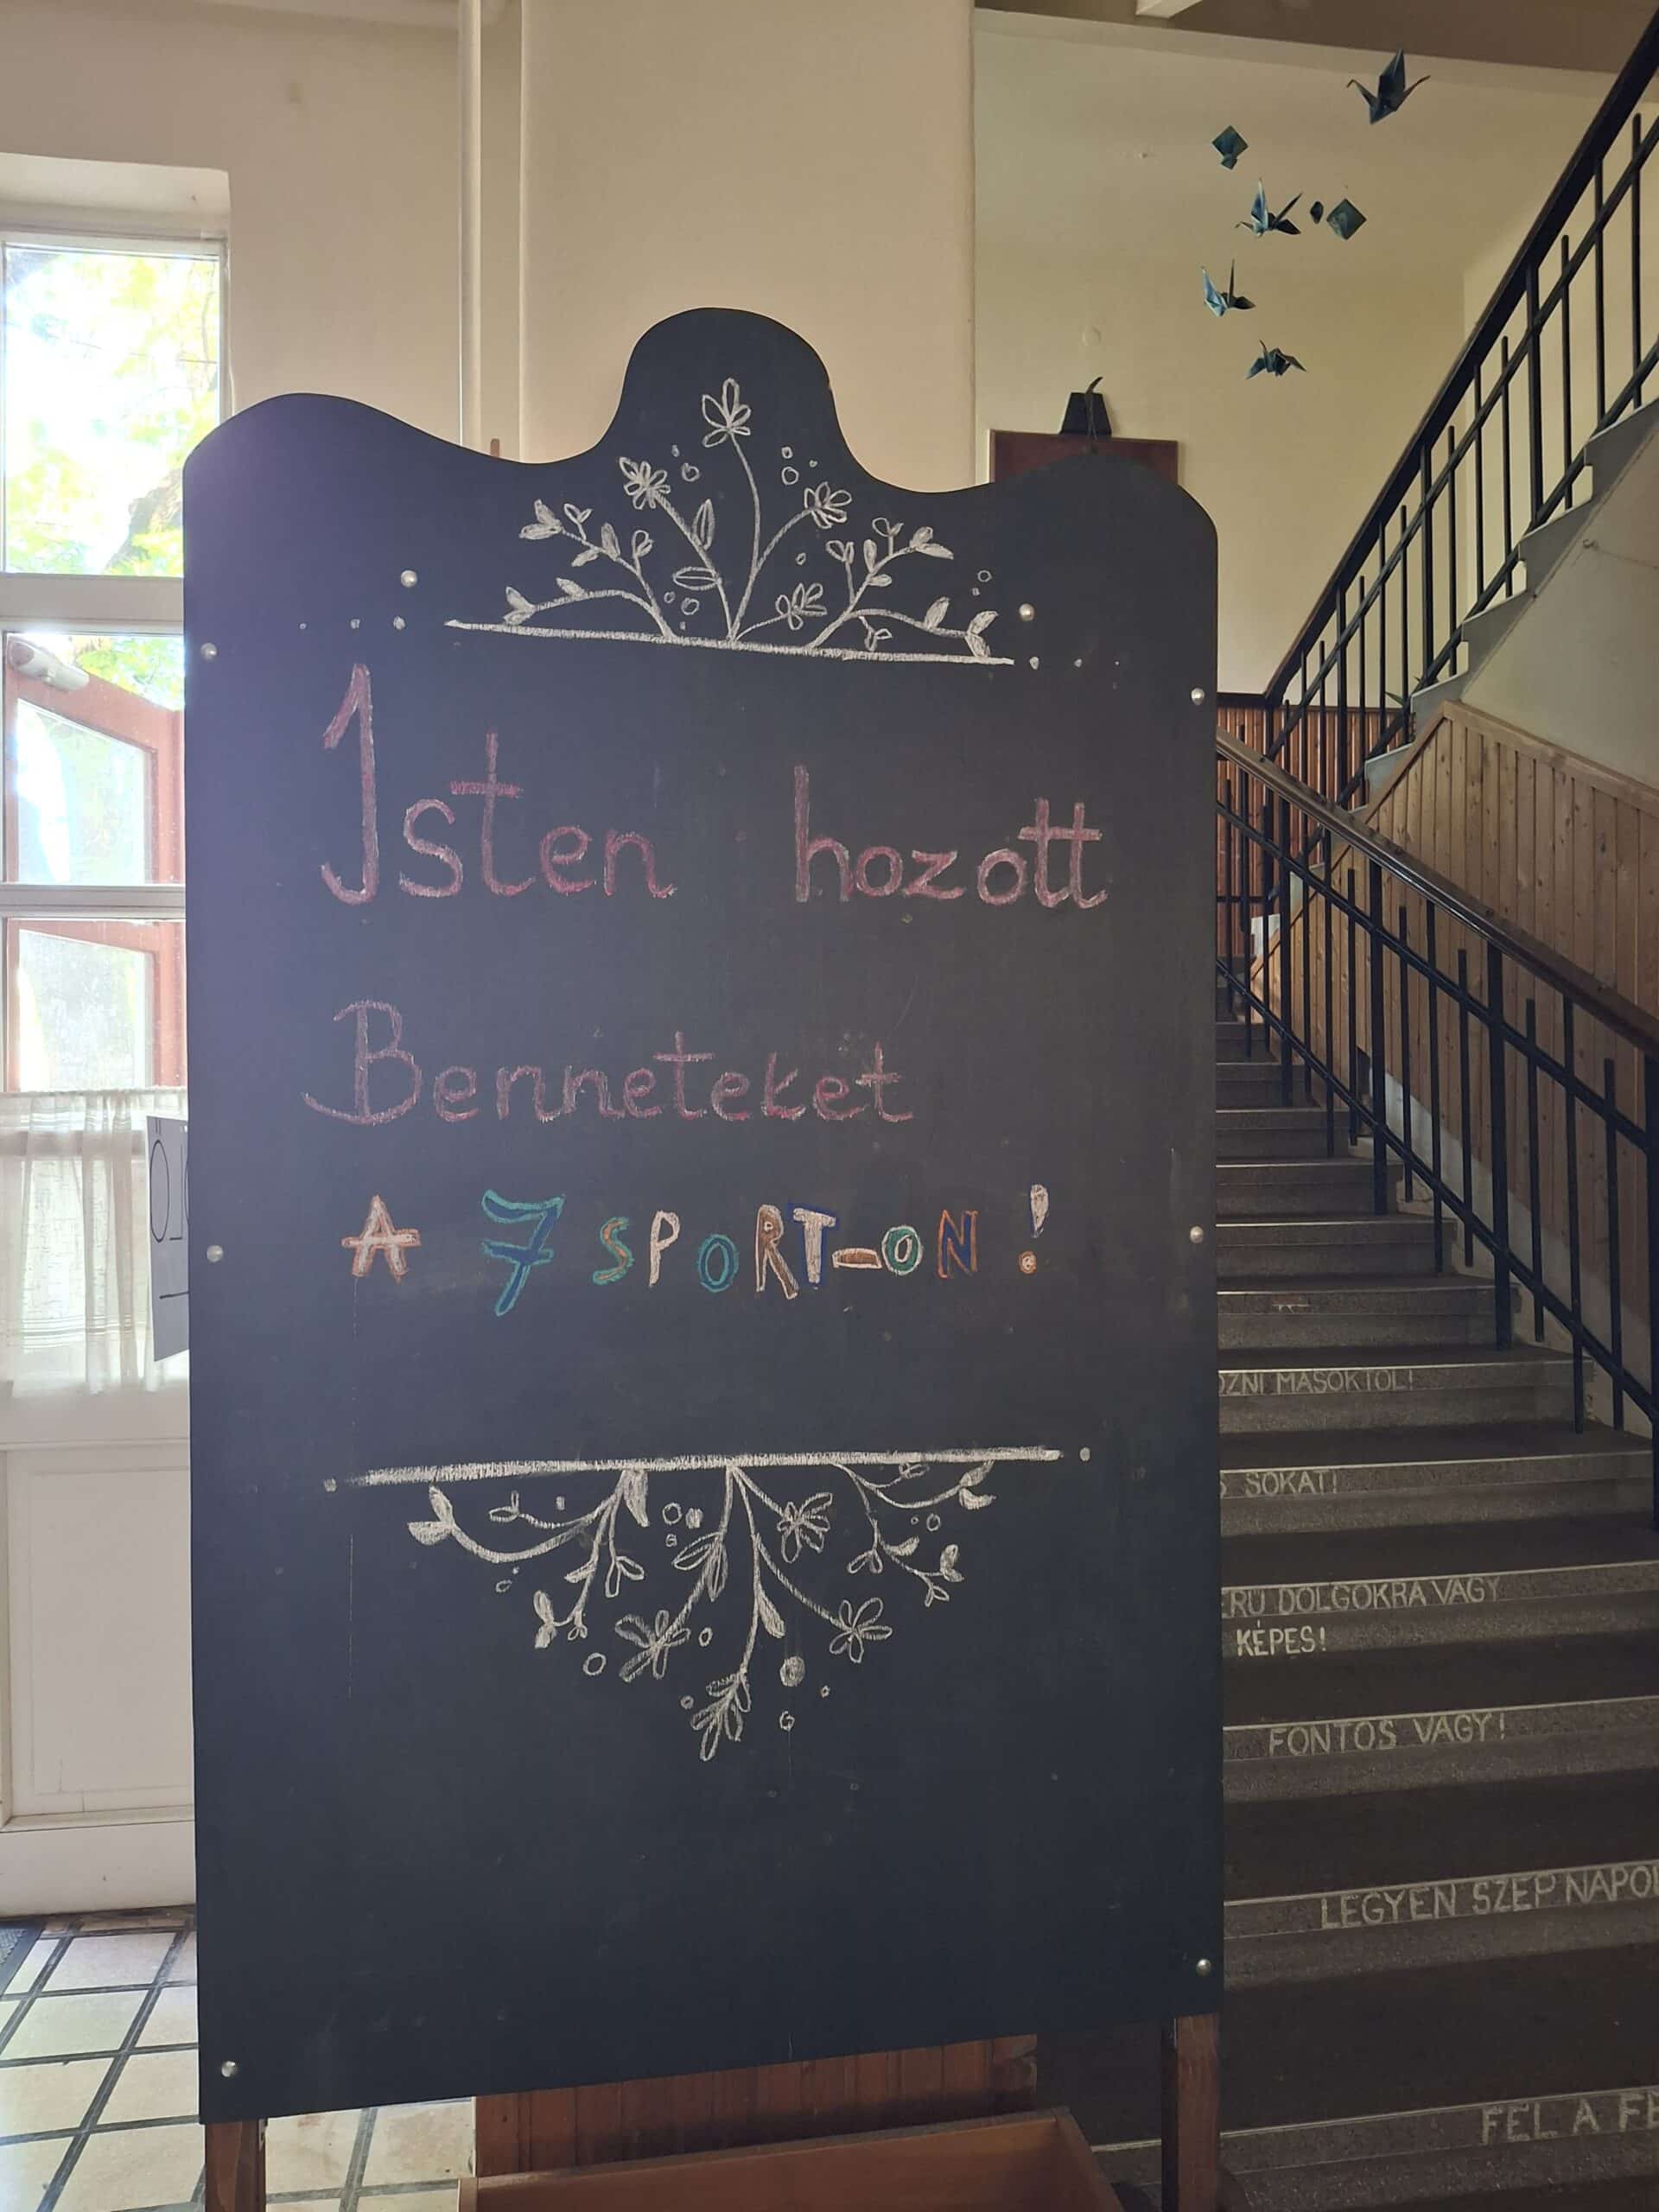 Isten hozott
Benneteket
A 7 SPORT-ON!
MÁSOKTÓL!
SOKAT!
DOLGOKRA VAGY
KÉPES!
FONTOS VAGY!
LEGYEN SZÉP
FEL A